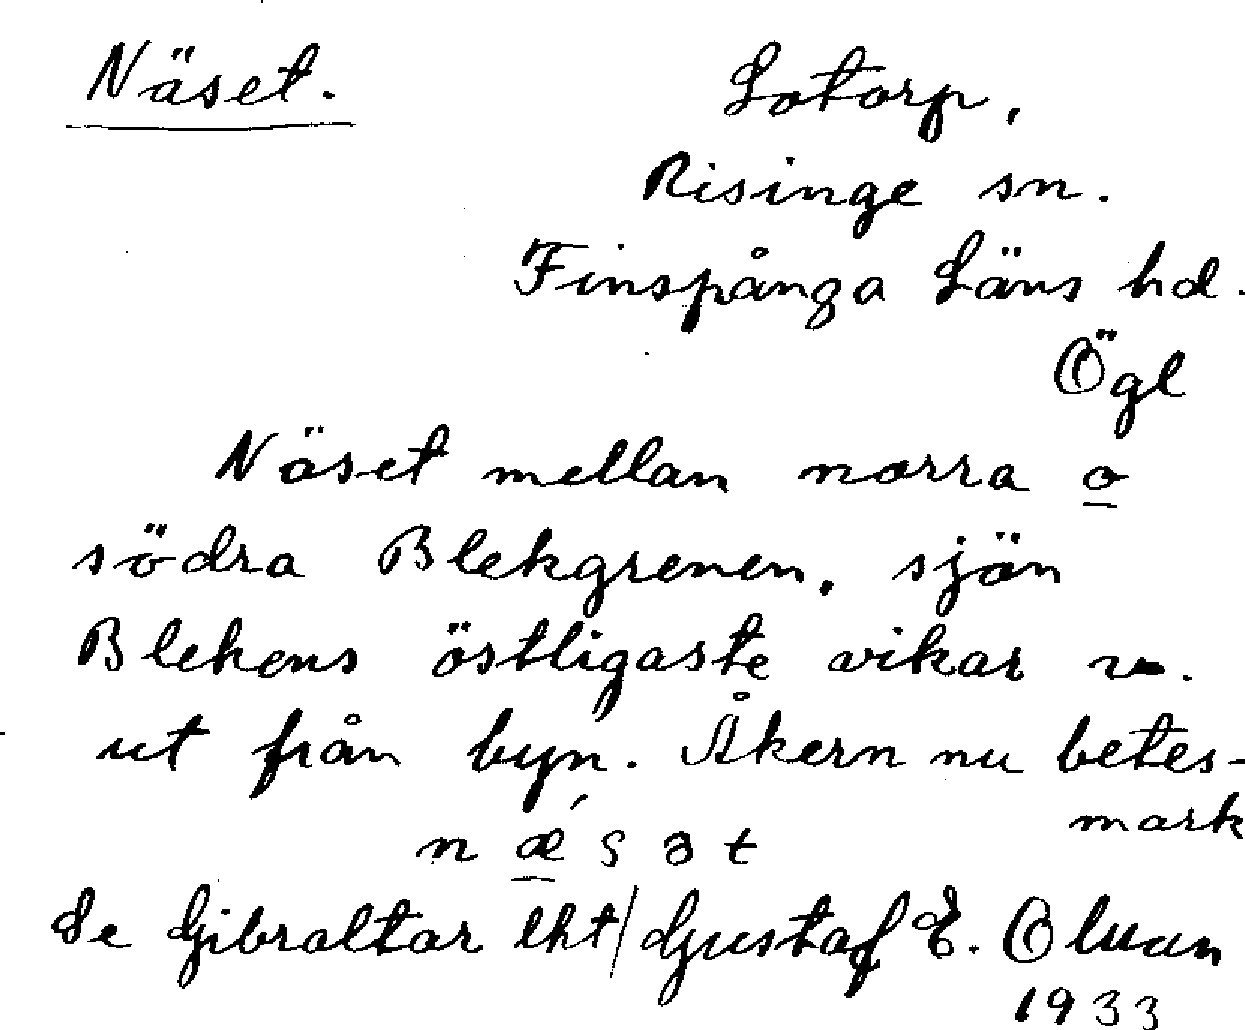 Näset.
Lotorp,
Risinge sn.
Finspånga Läns hd.
Ögl
Näset mellan norra o
södra Blekgrenen, sjön
Blekens östligaste vikar
ut från byn. Åkern nu betes-
mark
næ´sət
Se Gibraltar lht/Gustaf E. Olsson
1933